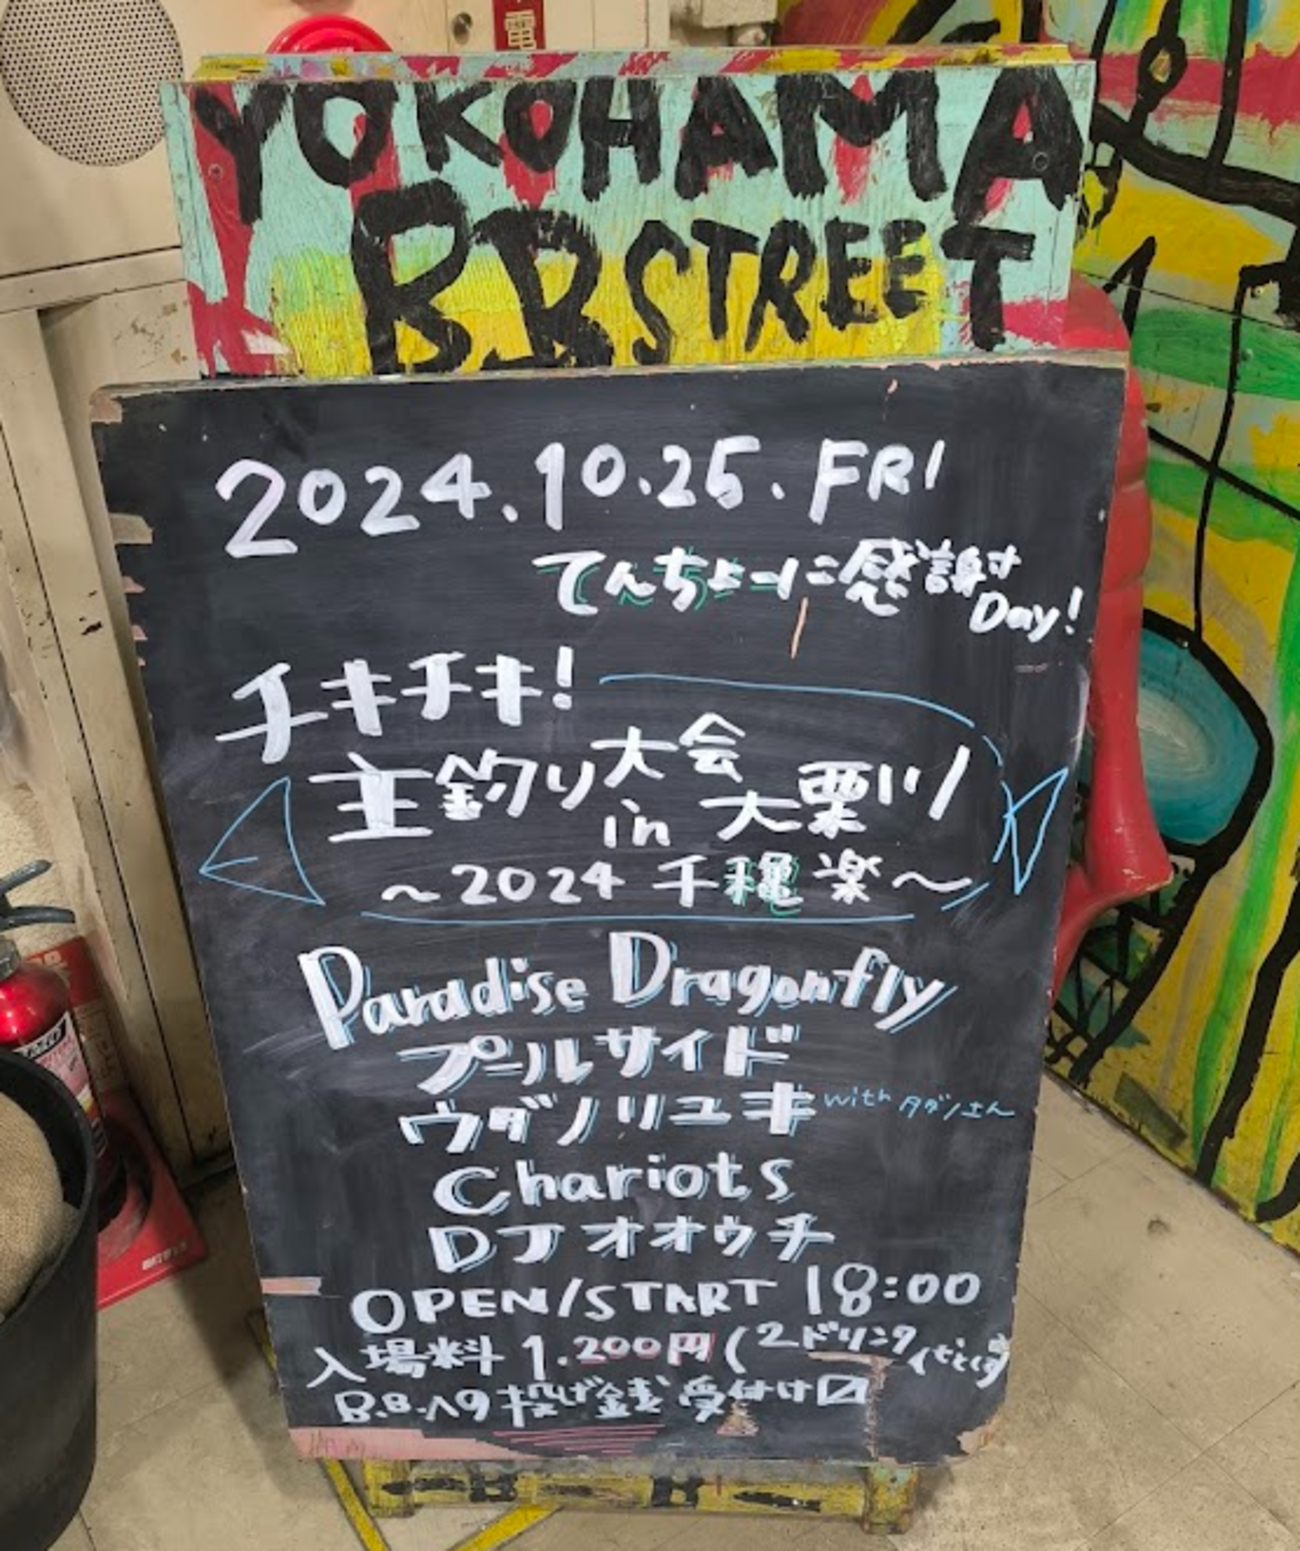 YOKOHAMA
BB STREET
2024.10.25.FRI
てんちょーに感謝
Day!
チキチキ!
主釣り大会
in 大栗川
~2024 千穐楽~
Paradise Dragonfly
プールサイド
ウダノリユキ with タダノさん
Chariots
DJオオウチ
OPEN/START 18:00
入場料 1.200円(2ドリンク
投げ銭 受付け